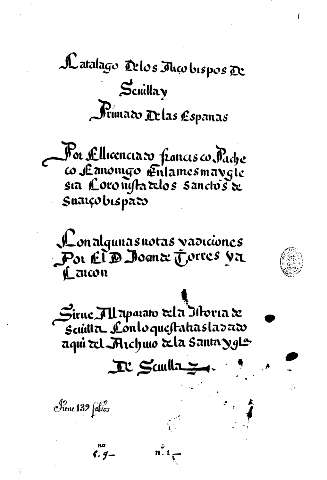 Catalago De los Arçobispos De
Sevilla y
Primado De las Espanas
Por El licenciado francisco Pache
co Canonigo En la mesma ygle
sia Coronista de los Sanctos de
su arçobispado
Con algunas notas y adiciones
Por El D Joan de Torres ya
Larcon
Sirue Al aparato de la istoria de
Sevilla Con lo questa trasladado
aqui del Archiuo de la Santa ygle
De Sevilla
Tiene 139 folios